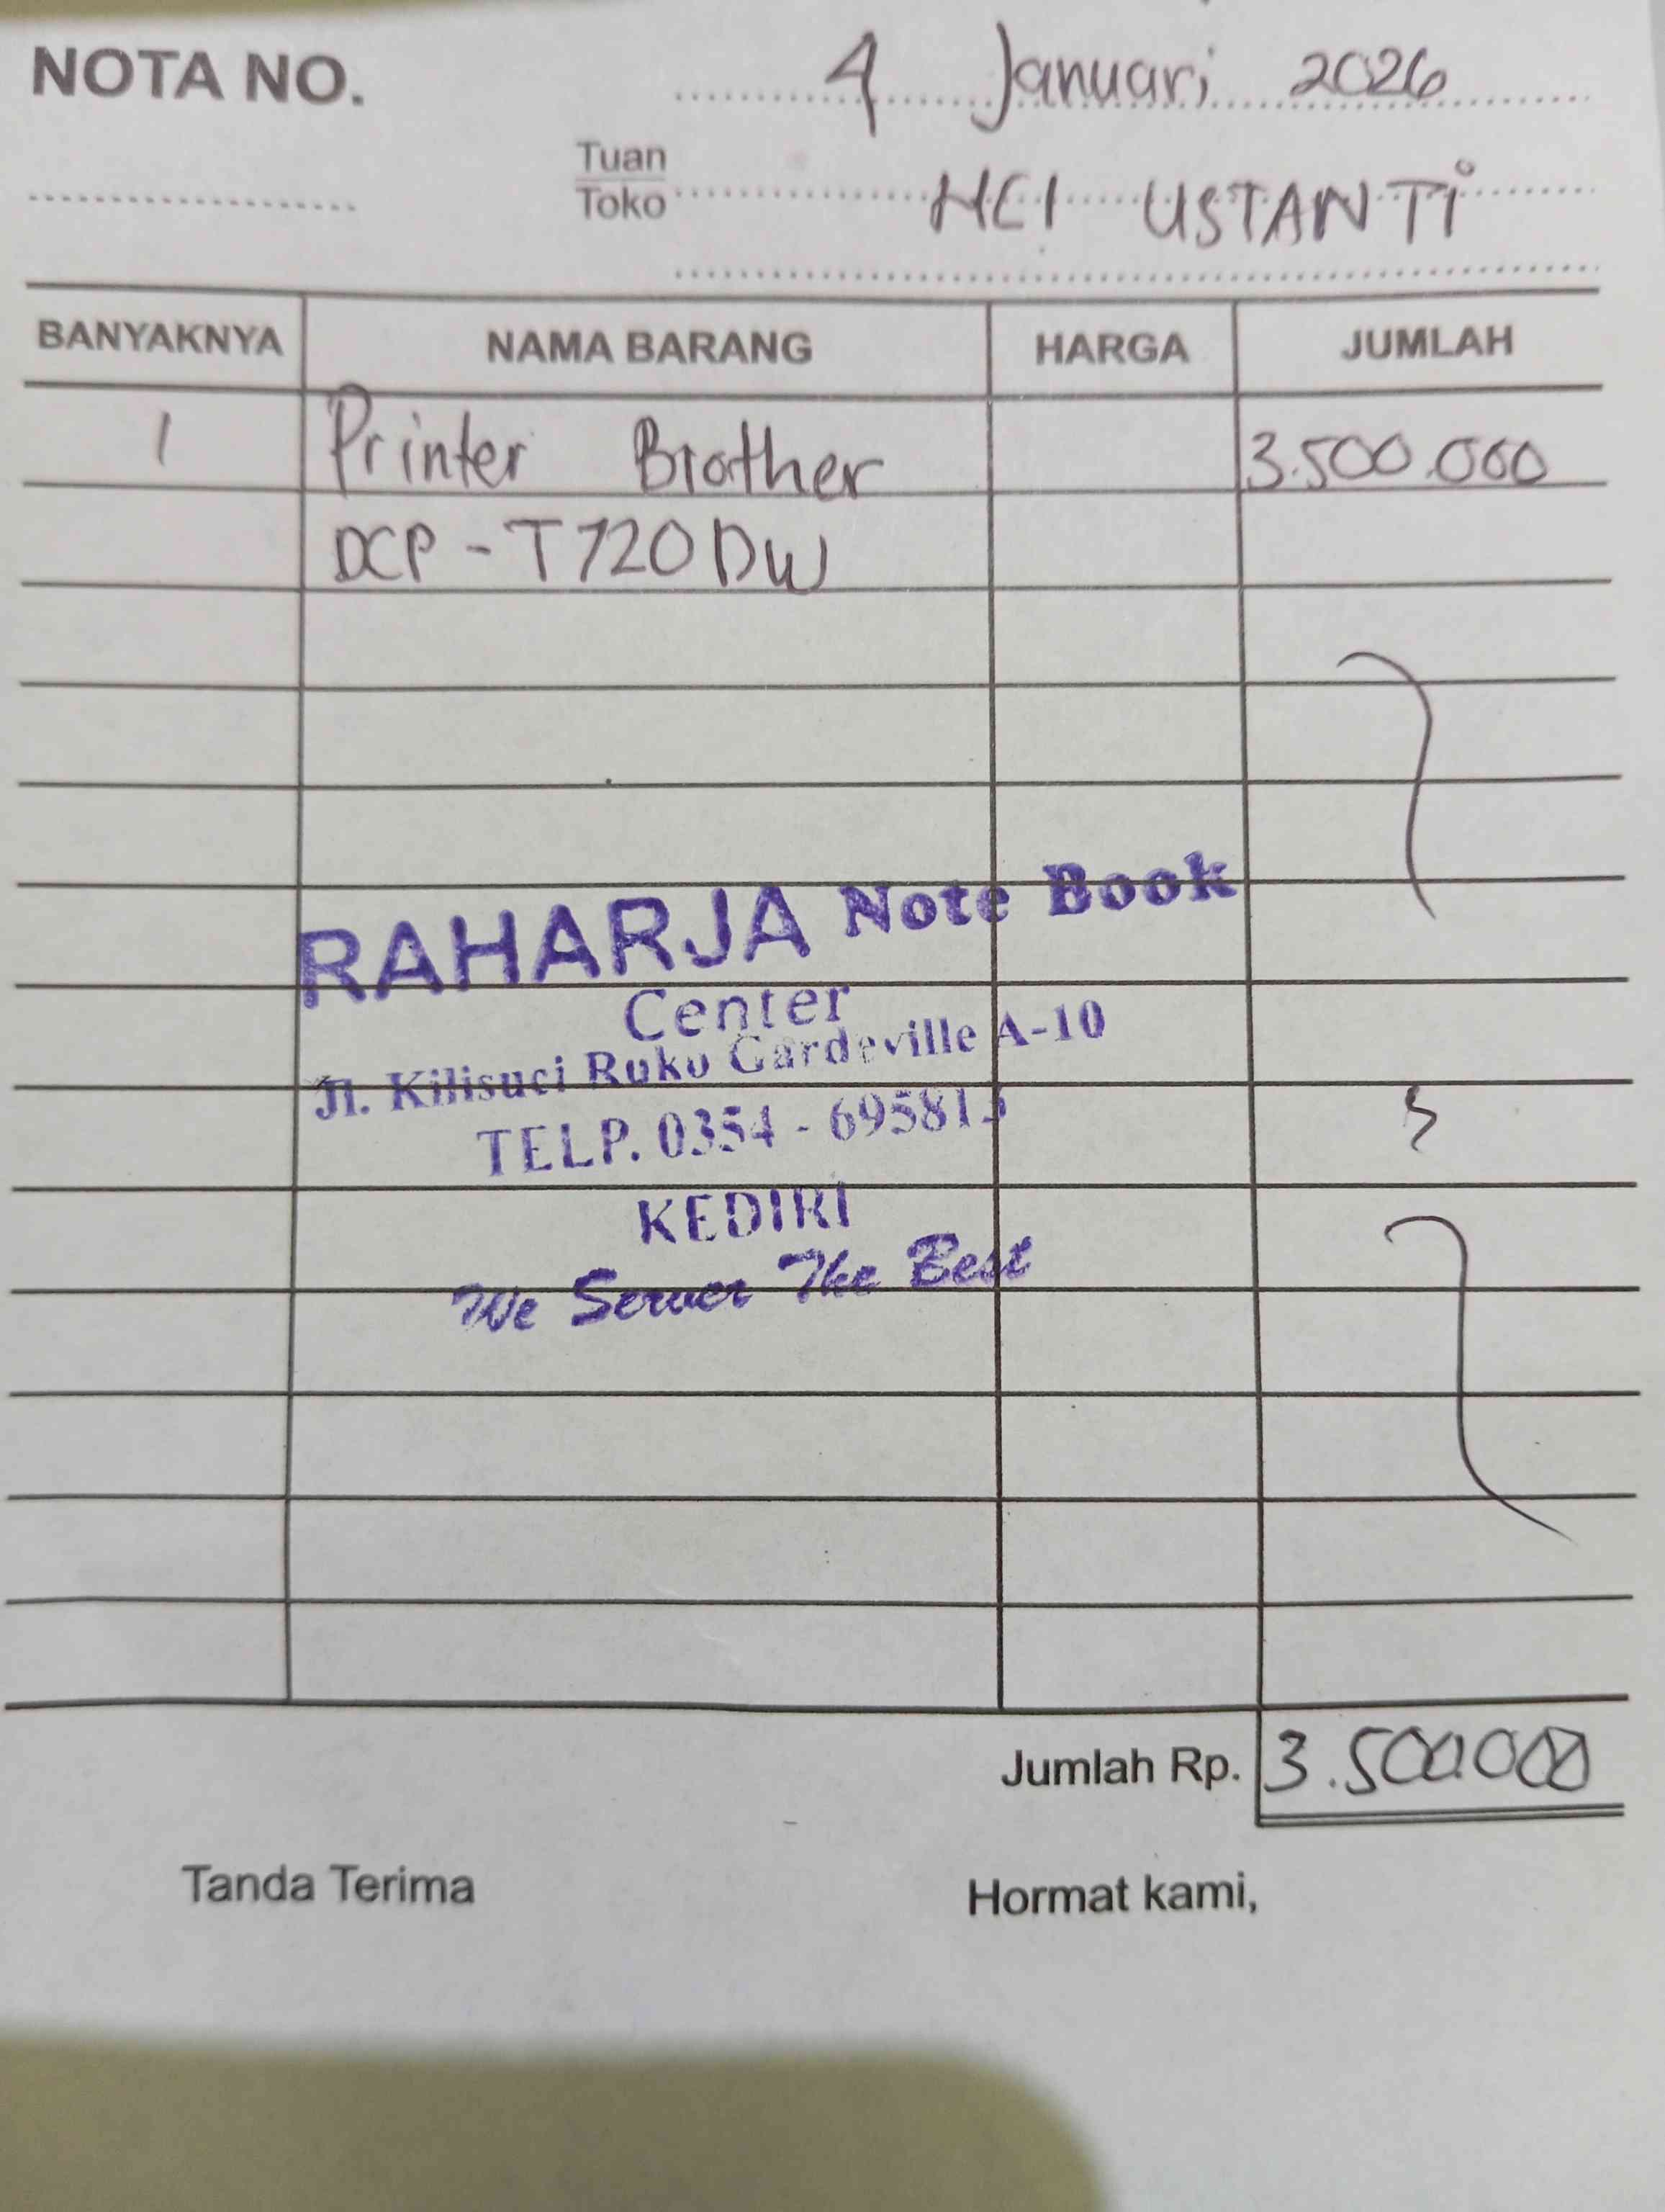 NOTA NO.
4 Januari 2026
Tuan
Toko
HEI USTANTI
BANYAKNYA NAMA BARANG HARGA JUMLAH
1 Printer Brother 3.500.000
DCP - T720DW
RAHARJA Note Book
Center
Jl. Kilisuci Ruko Gardeville A-10
TELP. 0354 - 695813
KEDIRI
We Server The Best
Jumlah Rp. 3.500.000
Tanda Terima Hormat kami,